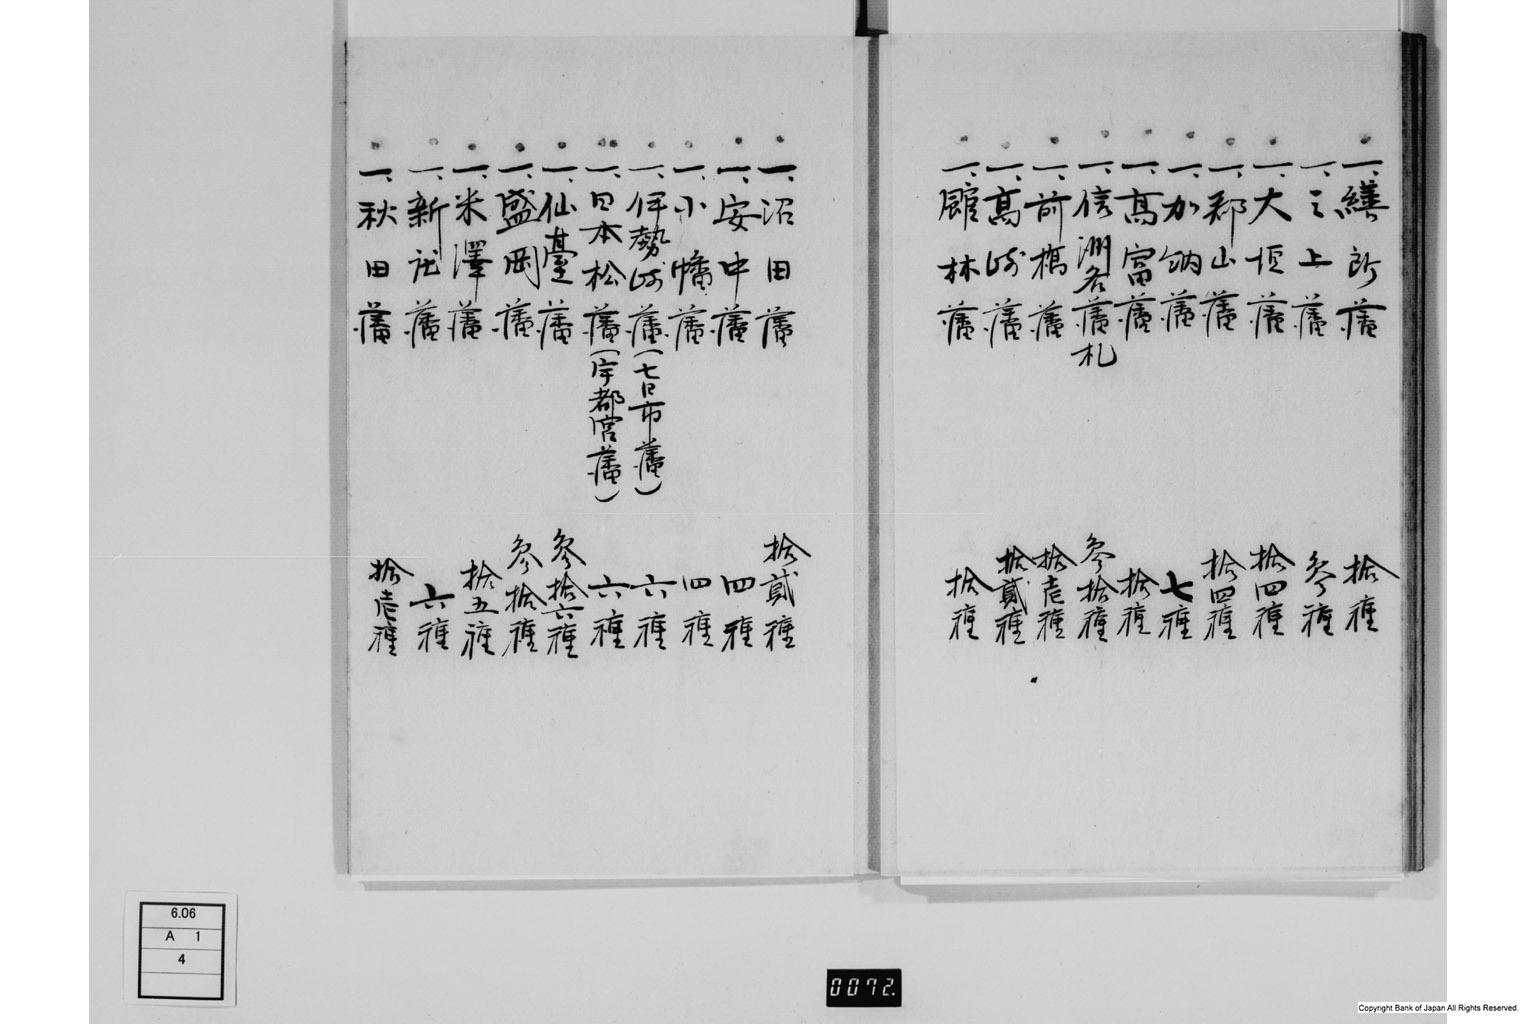 一、膳所藩 拾種
一、三上藩 参種
一、大垣藩 拾四種
一、郡山藩 拾四種
一、加納藩 七種
一、高富藩 拾種
一、信洲各藩札 参拾種
一、前橋藩 拾壱種
一、高崎藩 拾貮種
一、館林藩 拾種
一、沼田藩 拾貮種
一、安中藩 四種
一、小幡藩 四種
一、伊勢崎藩(七日市藩) 六種
一、日本松藩(宇都宮藩) 六種
一、仙臺藩 参拾六種
一、盛岡藩 参拾種
一、米澤藩 拾五種
一、新庄藩 六種
一、秋田藩 拾壱種
6.06
A 1
4
0072.
Copyright Bank of Japan All Rights Reserved.